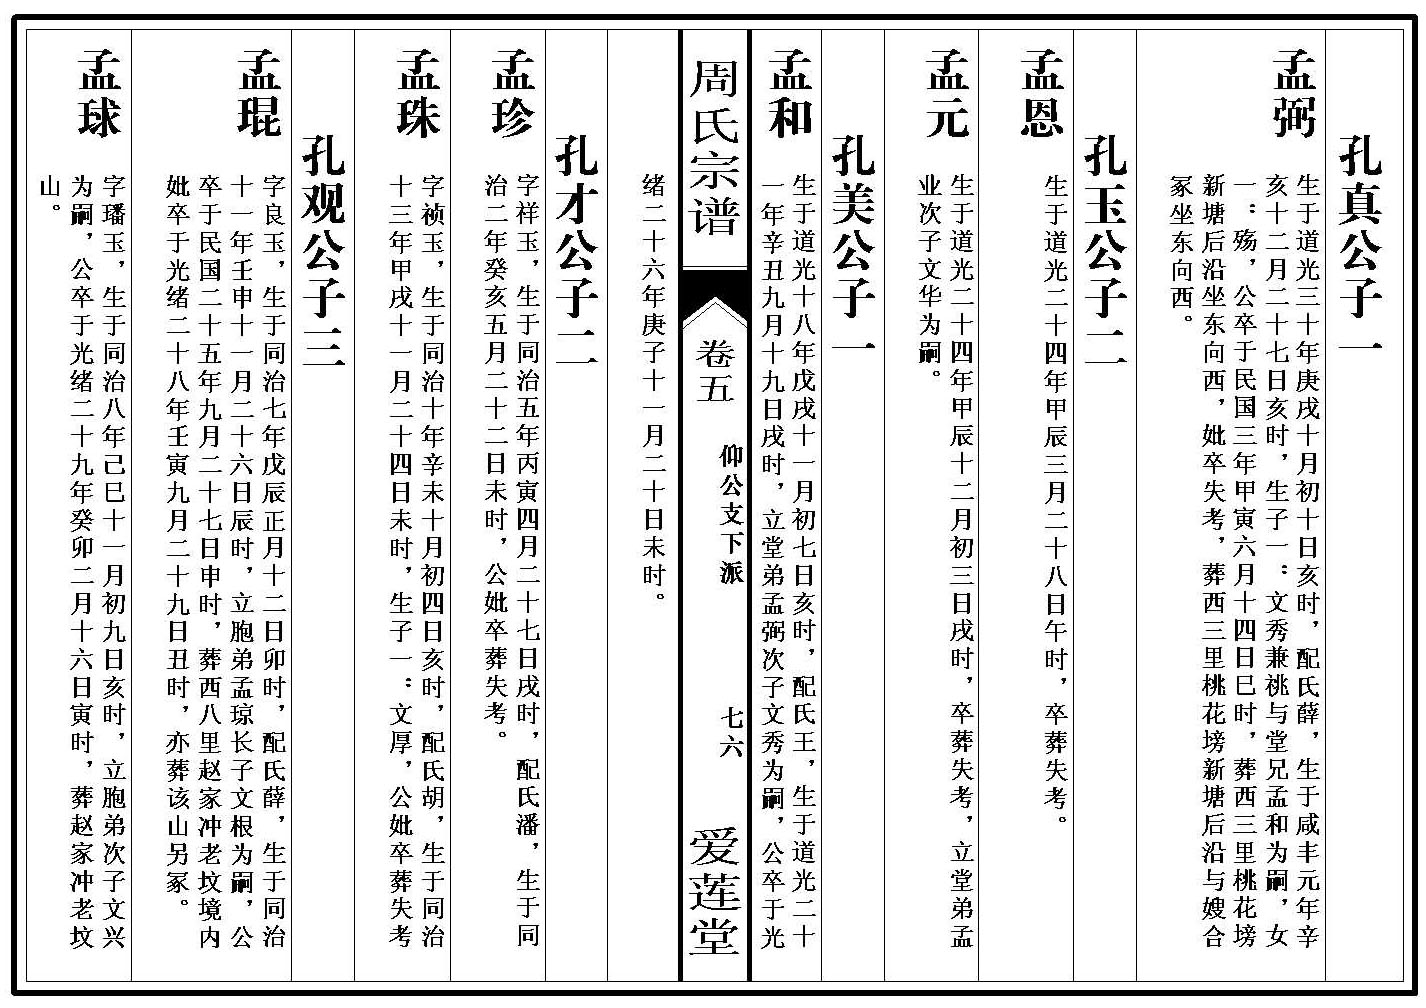 孔真公子一
孟弼
生于道光三十年庚戌十月初十日亥时，配氏薛，生于咸丰元年辛
亥十二月二十七日亥时，生子一：文秀兼祧与堂兄孟和为嗣，女
一：殇，公卒于民国三年甲寅六月十四日巳时，葬西三里桃花塝
新塘后沿坐东向西，妣卒失考，葬西三里桃花塝新塘后沿与嫂合
冢坐东向西。
孔玉公子二
孟恩
生于道光二十四年甲辰三月二十八日午时，卒葬失考。
孟元
生于道光二十四年甲辰十二月初三日戌时，卒葬失考，立堂弟孟
业次子文华为嗣。
孔美公子一
孟和
生于道光十八年戊戌十一月初七日亥时，配氏王，生于道光二十
一年辛丑九月十九日戌时，立堂弟孟弼次子文秀为嗣，公卒于光
周氏宗谱
卷五
仰公支下派
七六
爱莲堂
绪二十六年庚子十一月二十日未时。
孔才公子二
孟珍
字祥玉，生于同治五年丙寅四月二十七日戌时，配氏潘，生于同
治二年癸亥五月二十二日未时，公妣卒葬失考。
孟珠
字祯玉，生于同治十年辛未十月初四日亥时，配氏胡，生于同治
十三年甲戌十一月二十四日未时，生子一：文厚，公妣卒葬失考
孔观公子三
孟琨
字良玉，生于同治七年戊辰正月十二日卯时，配氏薛，生于同治
十一年壬申十一月二十六日辰时，立胞弟孟琼长子文根为嗣，公
卒于民国二十五年九月二十七日申时，葬西八里赵家冲老坟境内
妣卒于光绪二十八年壬寅九月二十九日丑时，亦葬该山另冢。
孟球
字璠玉，生于同治八年己巳十一月初九日亥时，立胞弟次子文兴
为嗣，公卒于光绪二十九年癸卯二月十六日寅时，葬赵家冲老坟
山。